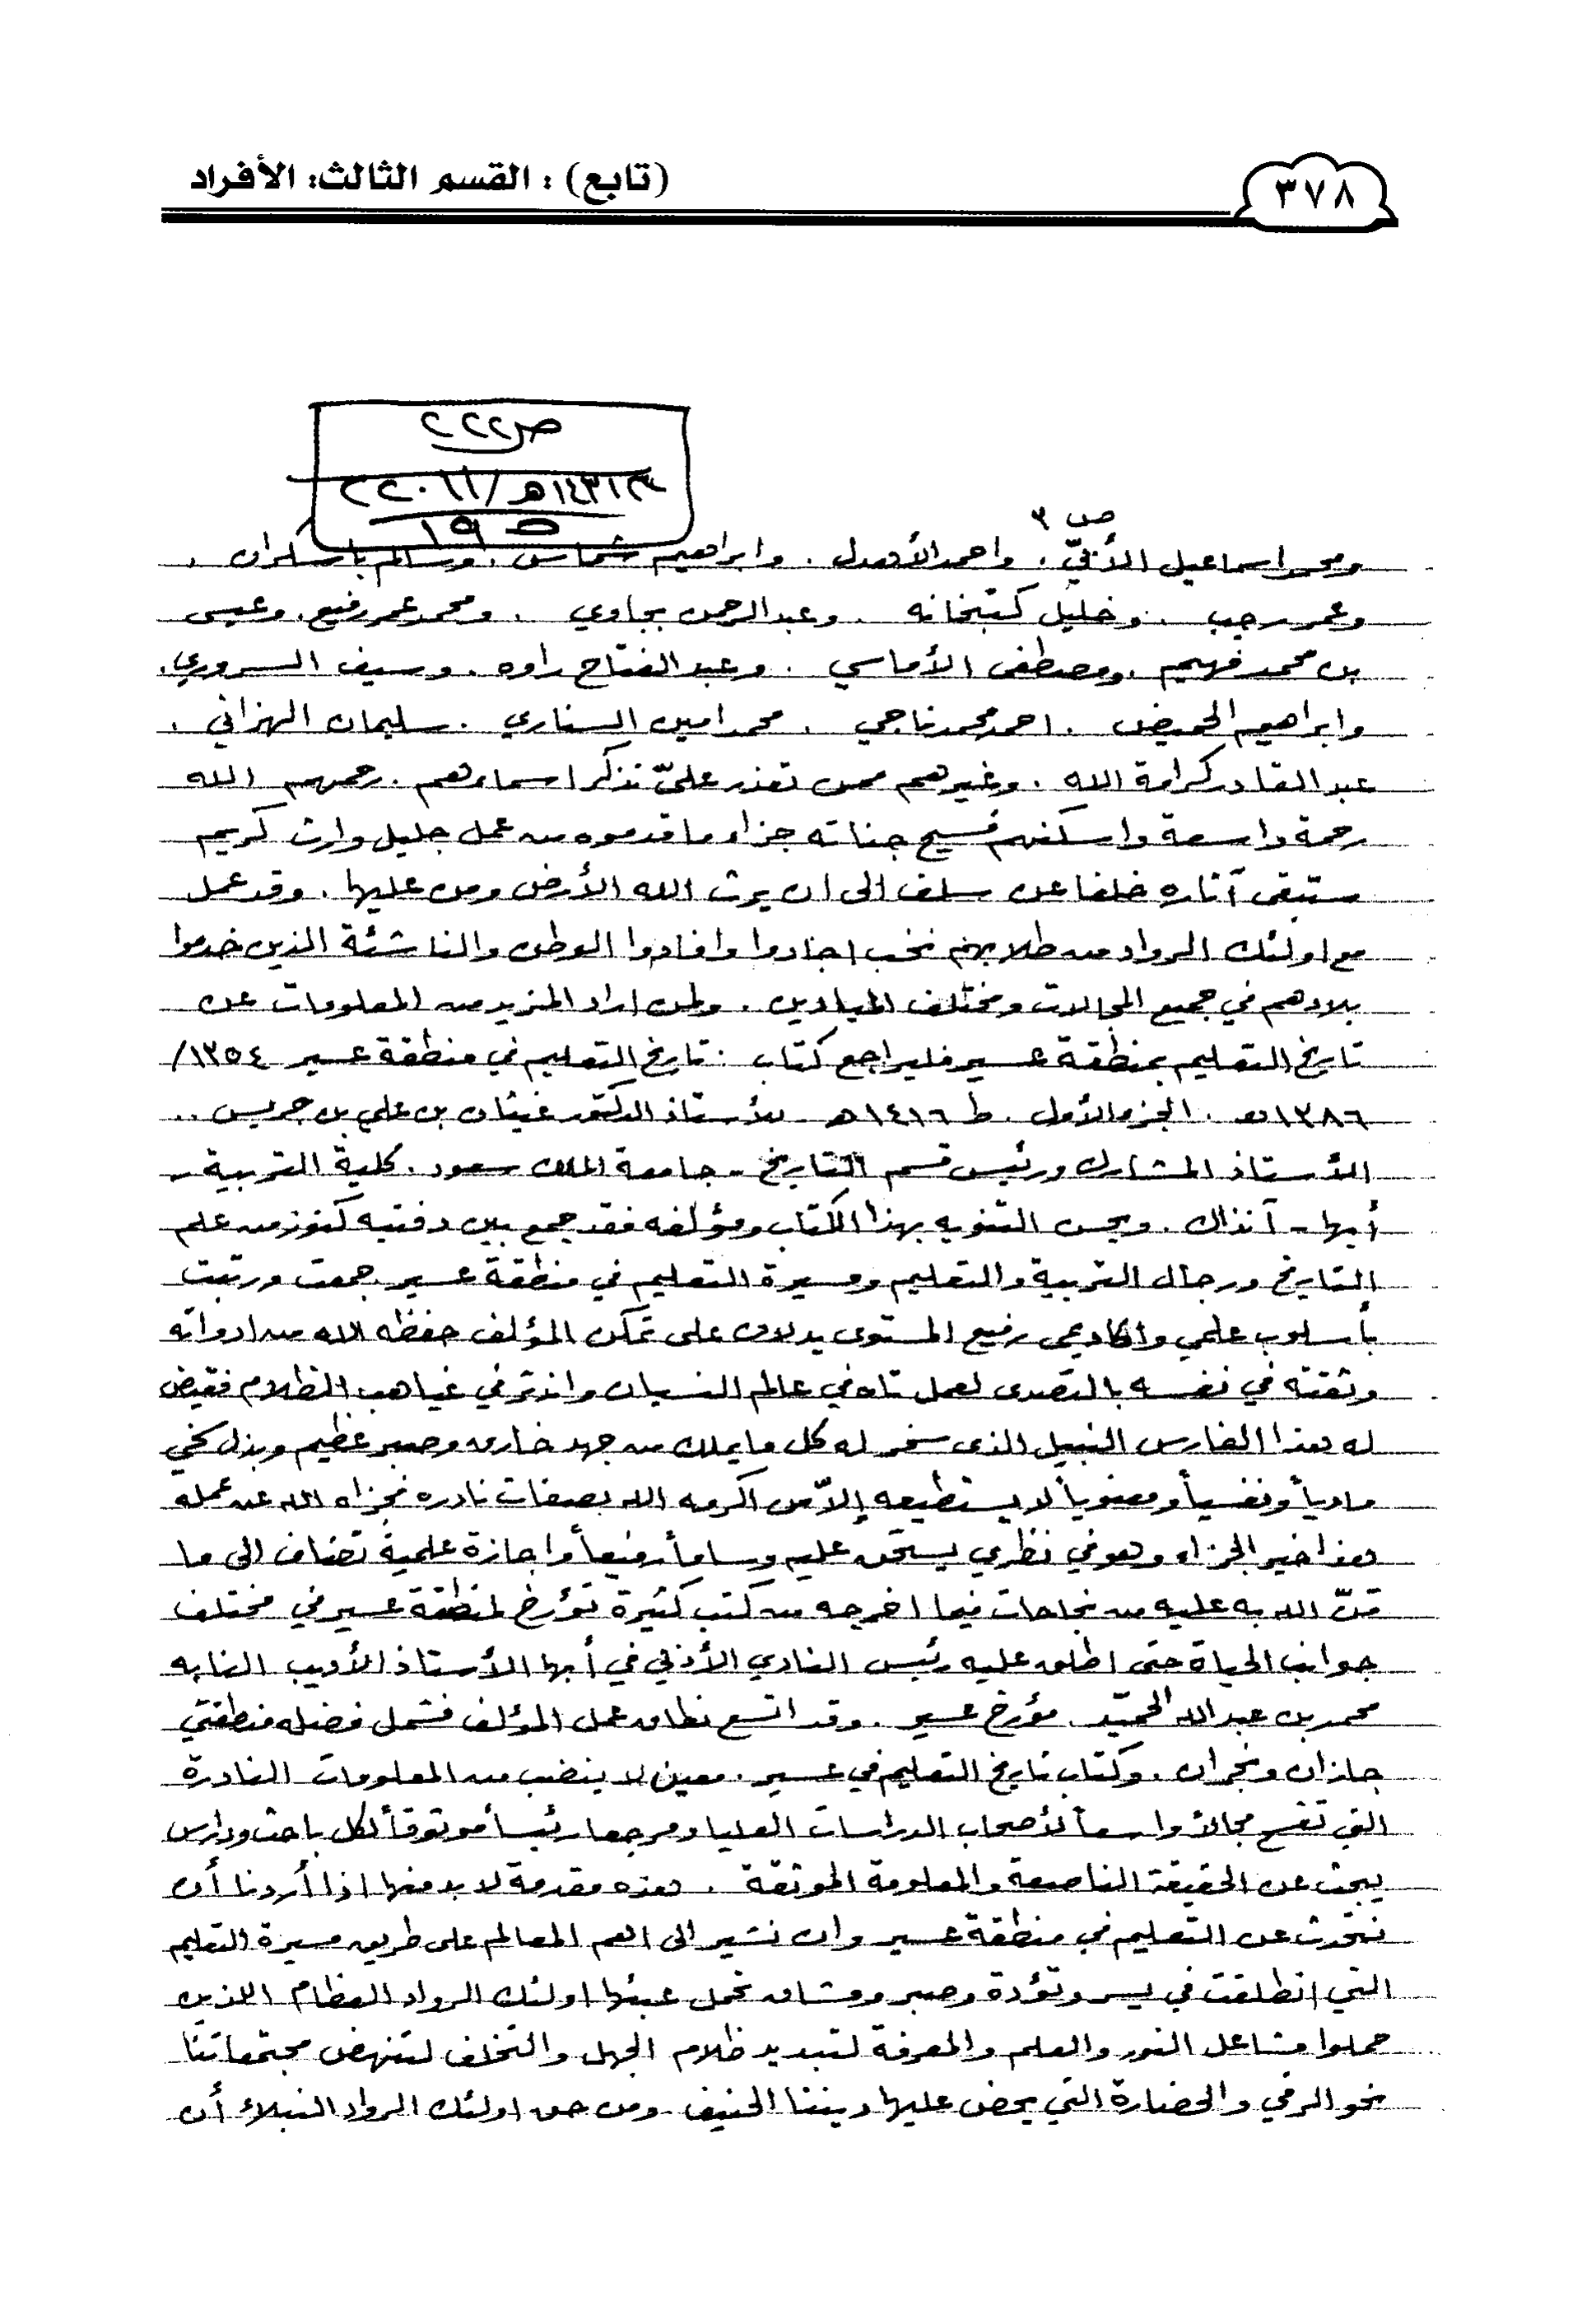 ٣٧٨
(تابع) : القسم الثالث: الأفراد
ص٢٢٢
ص ٣
ومحمد اسماعيل . واحمد الأهدل . وابراهيم شماس . وسالم باسكران .
وعمر رجب . وخليل كتبخانه . وعبدالرحمن بجاوي . ومحمد عمر رفيع . وعيسى
بن محمد فهيم . ومصطفى الأماسي . وعبدالفتاح راوه . وسيف السروري .
وابراهيم الحميضي . احمد محمد ناجي . محمد امين السناري . سليمان الهزاني .
عبدالقادر كرامة الله . وغيرهم ممن تعذر عليّ تذكر اسماءهم . رحمهم الله
رحمة واسعة واسكنهم فسيح جناته جزاء ما قدموه من عمل جليل وارث كريم
ستبقى آثاره خلفا عن سلف الى ان يرث الله الأرض ومن عليها . وقد عمل
مع اولئك الرواد من طلابهم نخب اجادوا وافادوا الوطن والناشئة الذين خدموا
بلادهم في جميع المجالات ومختلف الميادين . ولمن اراد المزيد من المعلومات عن
تاريخ التعليم بمنطقة عسير فليراجع كتاب : تاريخ التعليم في منطقة عسير ١٣٥٤/
١٣٨٦هـ . الجزء الأول . ط ١٤١٦هـ للأستاذ الدكتور غيثان بن علي بن جريس ..
الأستاذ المشارك ورئيس قسم التاريخ - جامعة الملك سعود . كلية التربية -
أبها - آنذاك . ويحسن التنويه بهذا الكتاب ومؤلفه فقد جمع بين دفتيه كنوز من علم
التاريخ ورجال التربية والتعليم ومسيرة التعليم في منطقة عسير . جمعت ورتبت
بأسلوب علمي واكاديمي رفيع المستوى يدلان على تمكن المؤلف حفظه الله من ادواته
وثقته في نفسه بالتصدى لعمل تاه في عالم النسيان واندثر في غياهب الظلام فقيض
له هذا الفارس النبيل الذى سخر له كل ما يملك من جهد خارق وصبر عظيم وبذل سخي
مادياً ونفسياً ومعنوياً لا يستطيعه إلاّ من اكرمه الله بصفات نادره فجزاه الله عن عمله
هذا خير الجزاء وهو في نظري يستحق عليه وساماً رفيعاً واجازة علمية تضاف الى ما
منّ الله به عليه من نجاحات فيما اخرجه من كتب كثيرة تؤرخ لمنطقة عسير في مختلف
جوانب الحياة حتى اطلق عليه رئيس النادي الأدبي في أبها الأستاذ الأديب النابه
محمد بن عبدالله الحميّد . مؤرخ عسير . وقد اتسع نطاق عمل المؤلف فشمل فضله منطقتي
جازان ونجران . وكتاب تاريخ التعليم في عسير . معين لا ينضب من المعلومات النادرة
التي تفسح مجالاً واسعاً لأصحاب الدراسات العليا ومرجعا رئيساً موثوقاً لكل باحث ودارس
يبحث عن الحقيقة الناصعة والمعلومة الموثقة . هذه مقدمة لا بد منها اذا أردنا أن
نتحدث عن التعليم في منطقة عسير وان نشير الى اهم المعالم على طريق مسيرة التعليم
التي انطلقت في يسر وتؤدة وصبر ومشاق تحمل عبئها اولئك الرواد العظام اللذين
حملوا مشاعل النور والعلم والمعرفة لتبديد ظلام الجهل والتخلف لتنهض مجتمعاتنا
نحو الرقي والحضارة التي يحض عليها ديننا الحنيف . ومن حق اولئك الرواد النبلاء أن